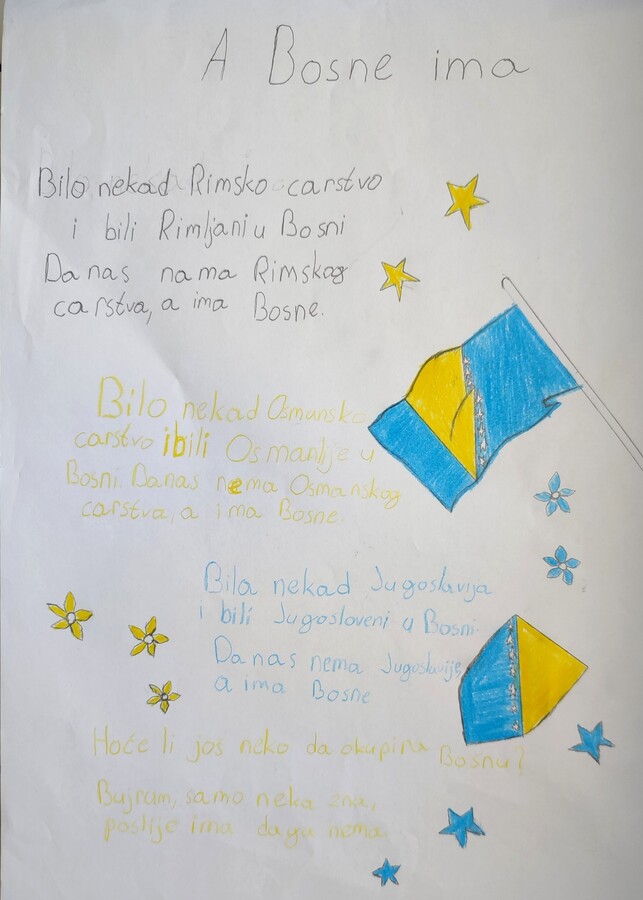 A Bosne ima
Bilo nekad Rimsko carstvo
i bili Rimljani u Bosni
Danas nama Rimskog
carstva, a ima Bosne.
Bilo nekad Osmansko
carstvo i bili Osmanlje u
Bosni. Danas nema Osmanskog
carstva, a ima Bosne.
Bila nekad Jugoslavija
i bili Jugosloveni u Bosni.
Danas nema Jugoslavije,
a ima Bosne
Hoće li jos neko da okupira Bosnu?
Bujrum, samo neka zna,
poslije ima da ga nema.